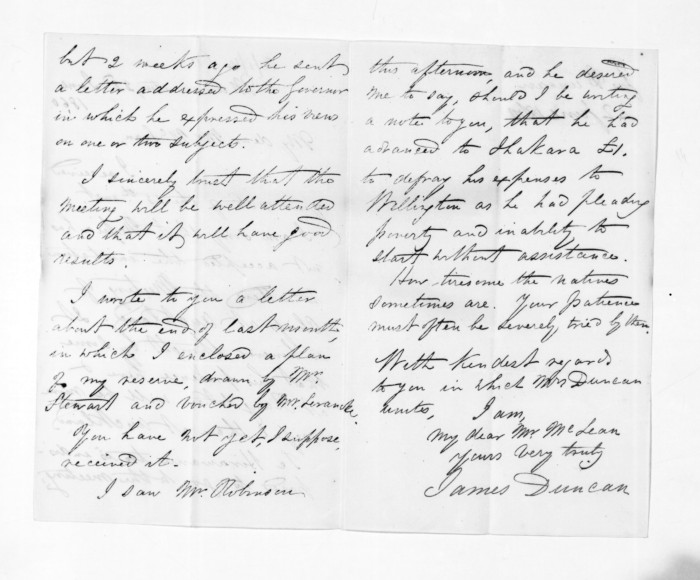 but 2 weeks ago he sent
a letter addressed to the Governor
in which he expressed his views
on one or two subject.
I sincerely trust that the
meeting will be well attended
and that it will have good
results.
I wrote to you a letter
about the end of last month,
in which I enclosed a plan
of my reserve, drawn by Mr.
Stewart and vouched by Mr.
You have not yet, I suppose,
received it.
I saw Mr. Robinson
this afternoon, and he desired
me to say, should I be writing
a note to you, that he had
advanced to Ihakara £1.
to defray his expenses to
Wellington as he had pleading
poverty and inability to
start without assistance.
How tiresome the natives
sometimes are. Your patience
must often be severely tried by them.
With kindest regards
to you in which Mrs Duncan
unites,
I am,
my dear Mr McLean
yours very truly
James Duncan